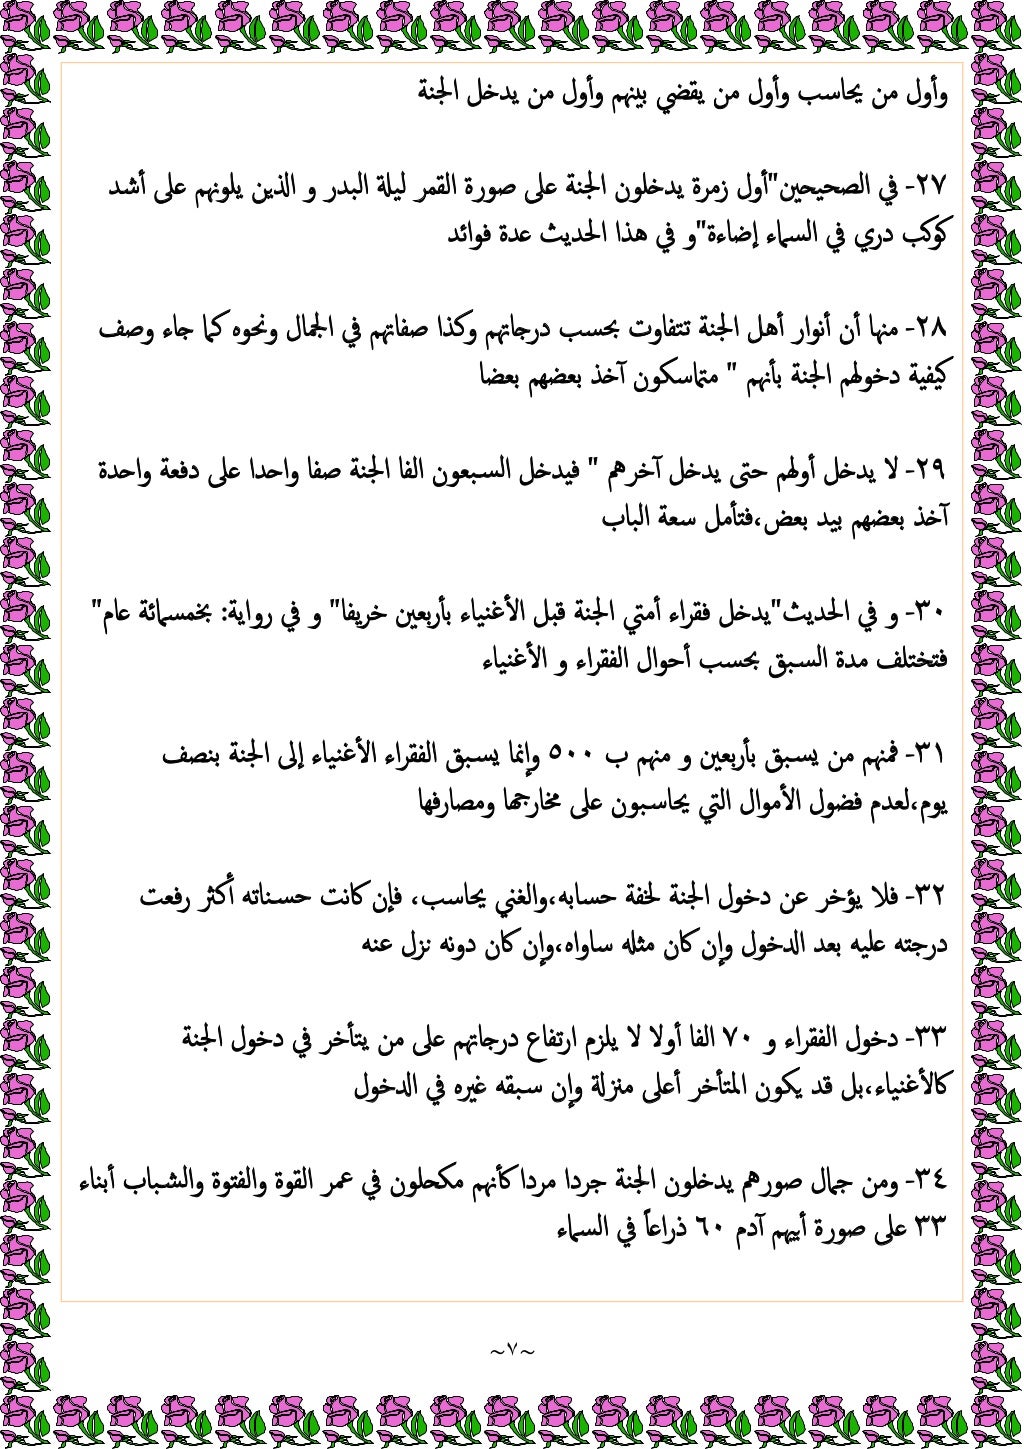 وأول من يحاسب وأول من يقضي بينهم وأول من يدخل الجنة
٢٧- في الصحيحين"أول زمرة يدخلون الجنة على صورة القمر ليلة البدر و الذين يلونهم على أشد
كوكب دري في السماء إضاءة"و في هذا الحديث عدة فوائد
٢٨- منها أن أنوار أهل الجنة تتفاوت بحسب درجاتهم وكذا صفاتهم في الجمال ونحوه كما جاء وصف
كيفية دخولهم الجنة بأنهم " متماسكون آخذ بعضهم بعضا
٢٩- لا يدخل أولهم حتى يدخل آخرهم " فيدخل السبعون الفا الجنة صفا واحدا على دفعة واحدة
آخذ بعضهم بيد بعض،فتأمل سعة الباب
٣٠- و في الحديث"يدخل فقراء أمتي الجنة قبل الأغنياء بأربعين خريفا" و في رواية: بخمسمائة عام"
فتختلف مدة السبق بحسب أحوال الفقراء و الأغنياء
٣١- فمنهم من يسبق بأربعين و منهم ب ٥٠٠ وإنما يسبق الفقراء الأغنياء إلى الجنة بنصف
يوم،لعدم فضول الأموال التي يحاسبون على مخارجها ومصارفها
٣٢- فلا يؤخر عن دخول الجنة لخفة حسابه،والغني يحاسب، فإن كانت حسناته أكثر رفعت
درجته عليه بعد الدخول وإن كان مثله ساواه،وإن كان دونه نزل عنه
٣٣- دخول الفقراء و ٧٠ الفا أولا لا يلزم ارتفاع درجاتهم على من يتأخر في دخول الجنة
كالأغنياء،بل قد يكون المتأخر أعلى منزلة وإن سبقه غيره في الدخول
٣٤- ومن جمال صورهم يدخلون الجنة جردا مردا كأنهم مكحلون في عمر القوة والفتوة والشباب أبناء
٣٣ على صورة أبيهم آدم ٦٠ ذراعاً في السماء
~٧~